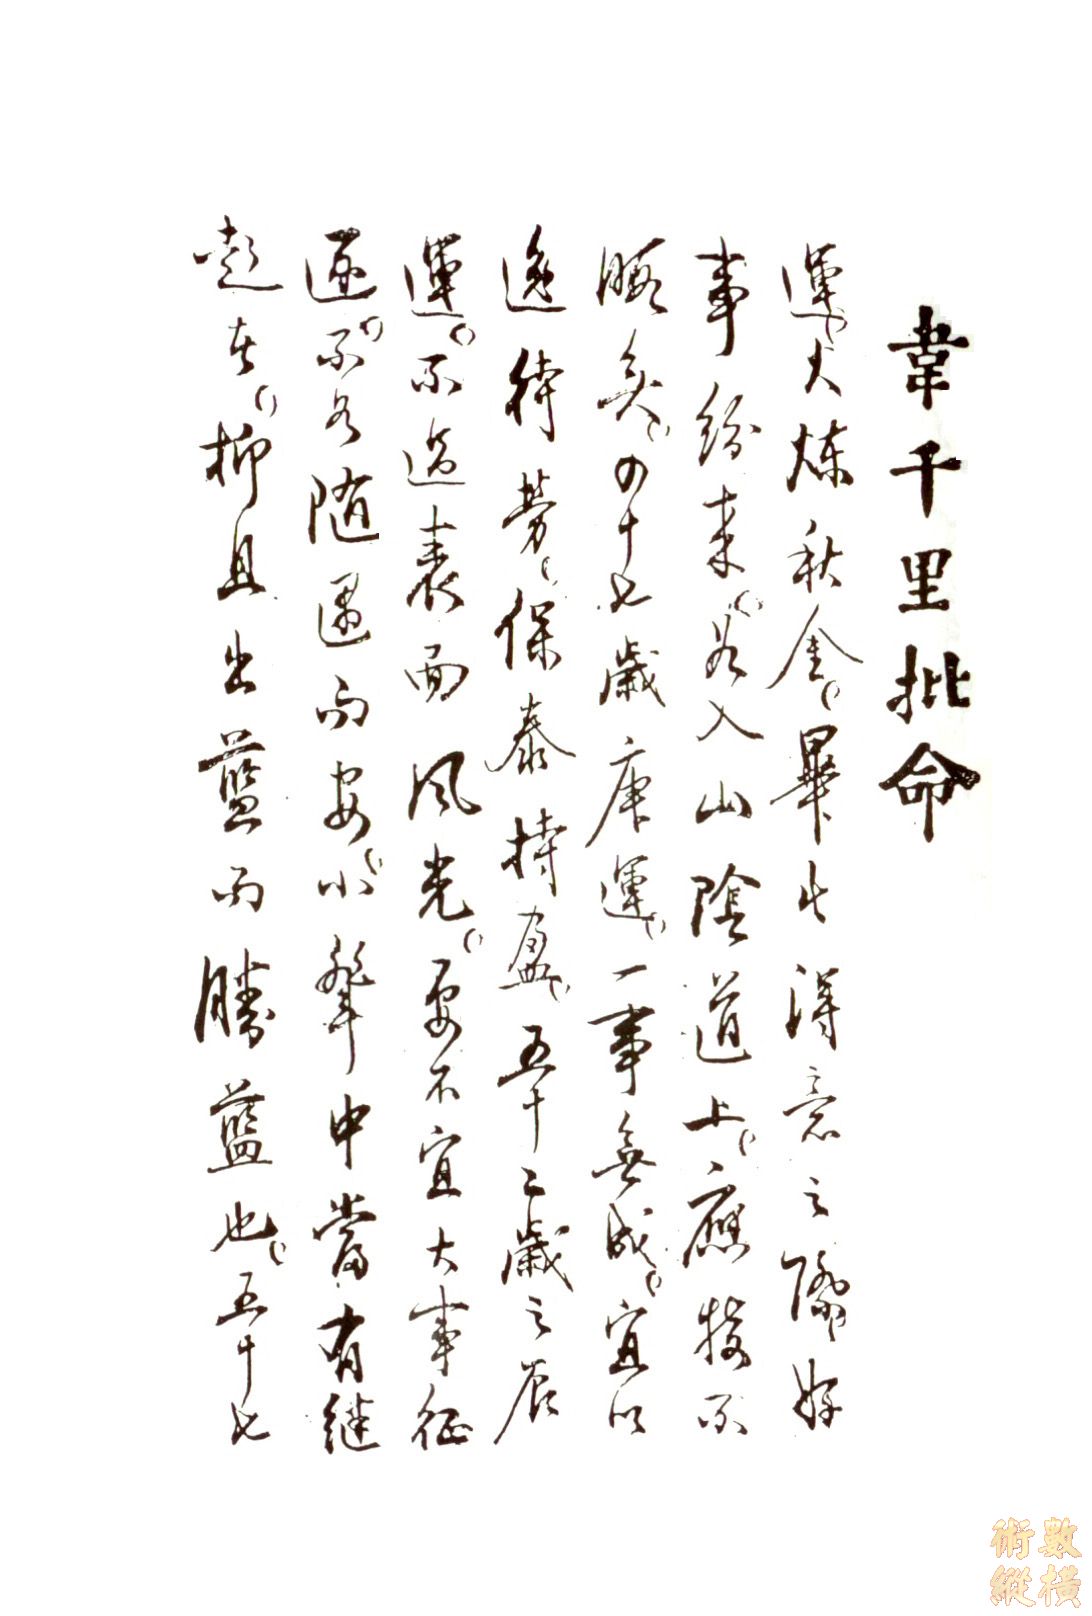 韋千里批命
運、火煉秋金、畢生得意之際、好
事紛來、若入山陰道上、應接不
暇矣、四十七歲庚運、一事無成、宜以
逸待勞、保泰持盈、五十二歲之辰
運、不過表面風光、要不宜大事征
逐、不若隨遇而安、小輩中當有繼
起者、抑且出藍而勝藍也、五十七
術數
縱橫